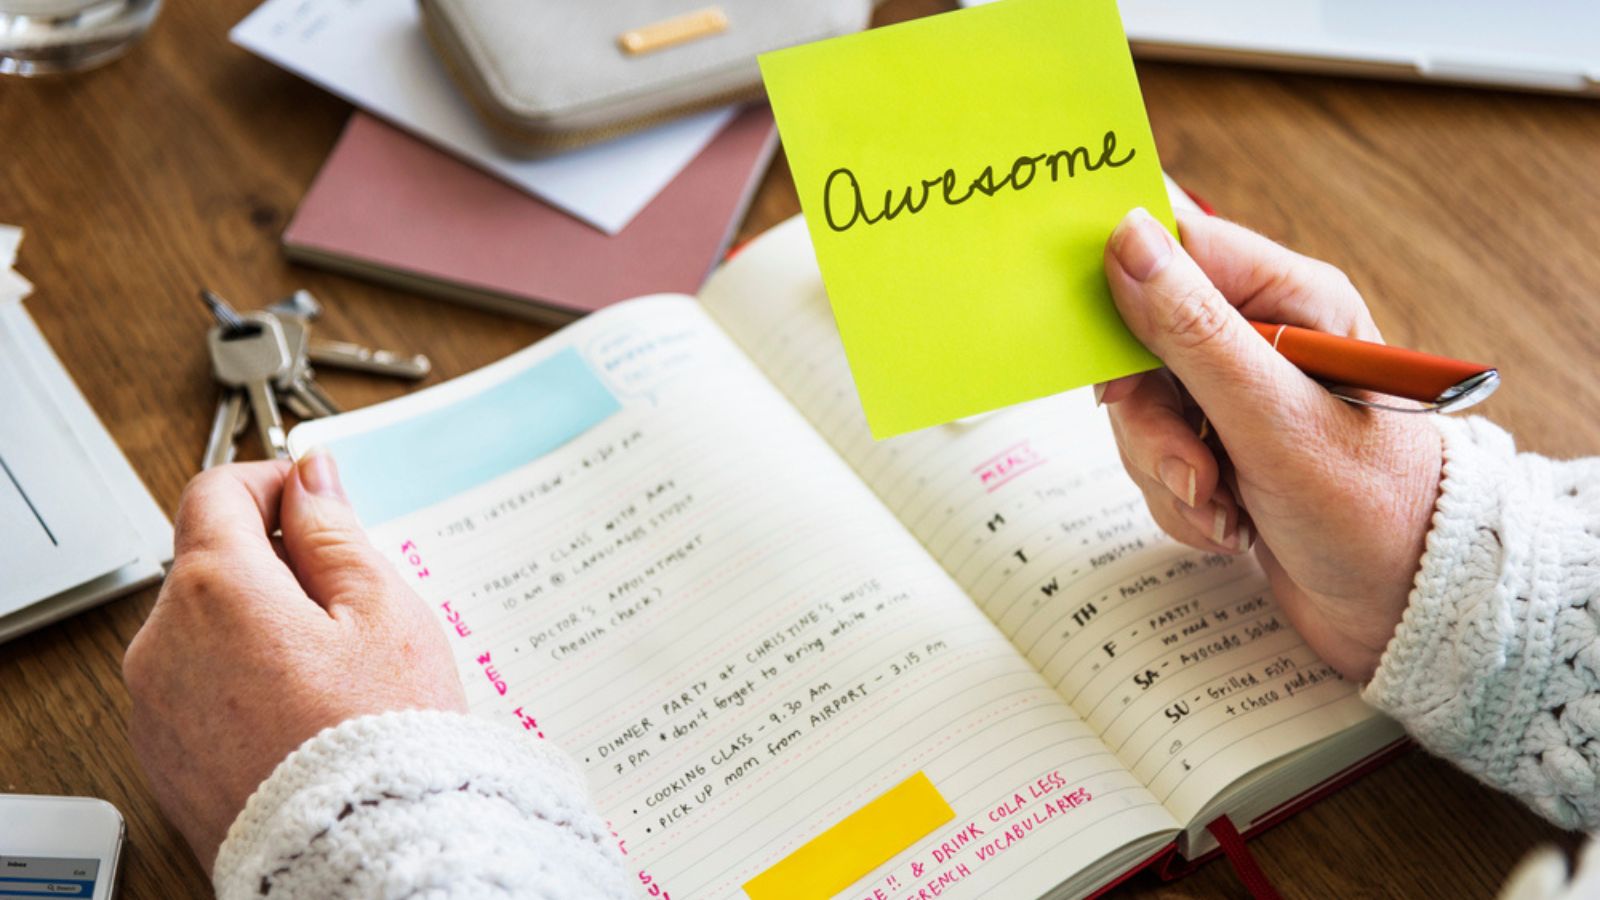 Awesome
• JOB INTERVIEW -
• FRENCH CLASS WITH AMY
10 AM @ LANGUAGES STUDIO
• DOCTOR'S APPOINTMENT
(health check)
• DINNER PARTY at CHRISTINE'S HOUSE
7 PM * don't forget to bring white wine
• COOKING CLASS - 9.30 AM
• PICK UP mom from AIRPORT - 3.15 PM
MON
TUE
WED
TH
SU
!! & DRINK COLA LESS
FRENCH VOCABULARIES
MEALS
- M -
- T - Bean
+ Baked
- W - Roasted
- TH - Pasta with
- F - PARTY!
no need to cook
- SA - Avocado Salad
SU - Grilled Fish
+ choco pudding
Inbox
Edit
Search